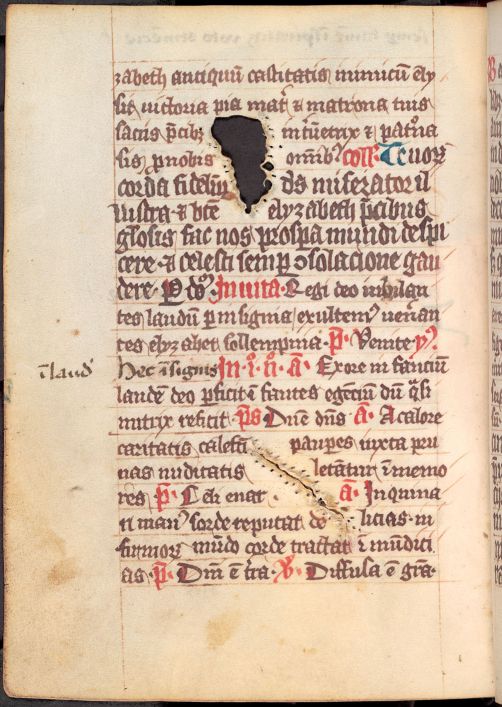 zabeth antiquū castitatis inimicū ely
sit victoria pia mat̄ & matrona tuis
saciis p̄cib3 int̄uetrix & pat̄ona
sis p nobis omib3 coll̄ Tuoꝝ
corda fideliū ds miserator il
lustra & bt̄e elyzabeth p̄cibus
glosis fac nos prospa mundi despi
cere & celesti semp ꝯsolacione gau
dere P do Inuita Regi deo iubilan
tes laudū p insignia exultem⁹ venan
tes elyzabet sollempnia p̄ Venite y̓
ī laud̄
hec īsignis In i n̄ a Ex ore infanciū
laudē deo p̄ficit īfantes egeciū dū q̄si
nutrix reficit p̄s Dn̄e dn̄s a A calore
caritatis calefā paupes iuxta pru
nas nuditatis letātur ī memo
res p̄ Celi enat a Inquina
ti man⁹ sorde reputat de licias in
firmoꝝ mūdo corde tractat ī mūdici
as p̄ Dn̄i ē t̄ra V Diffusa ē grā